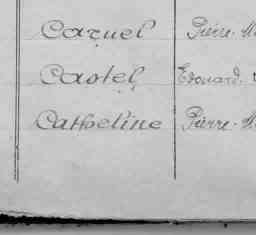 Caruel Pierre-M
Castel Edouard
Catheline Pierre-M